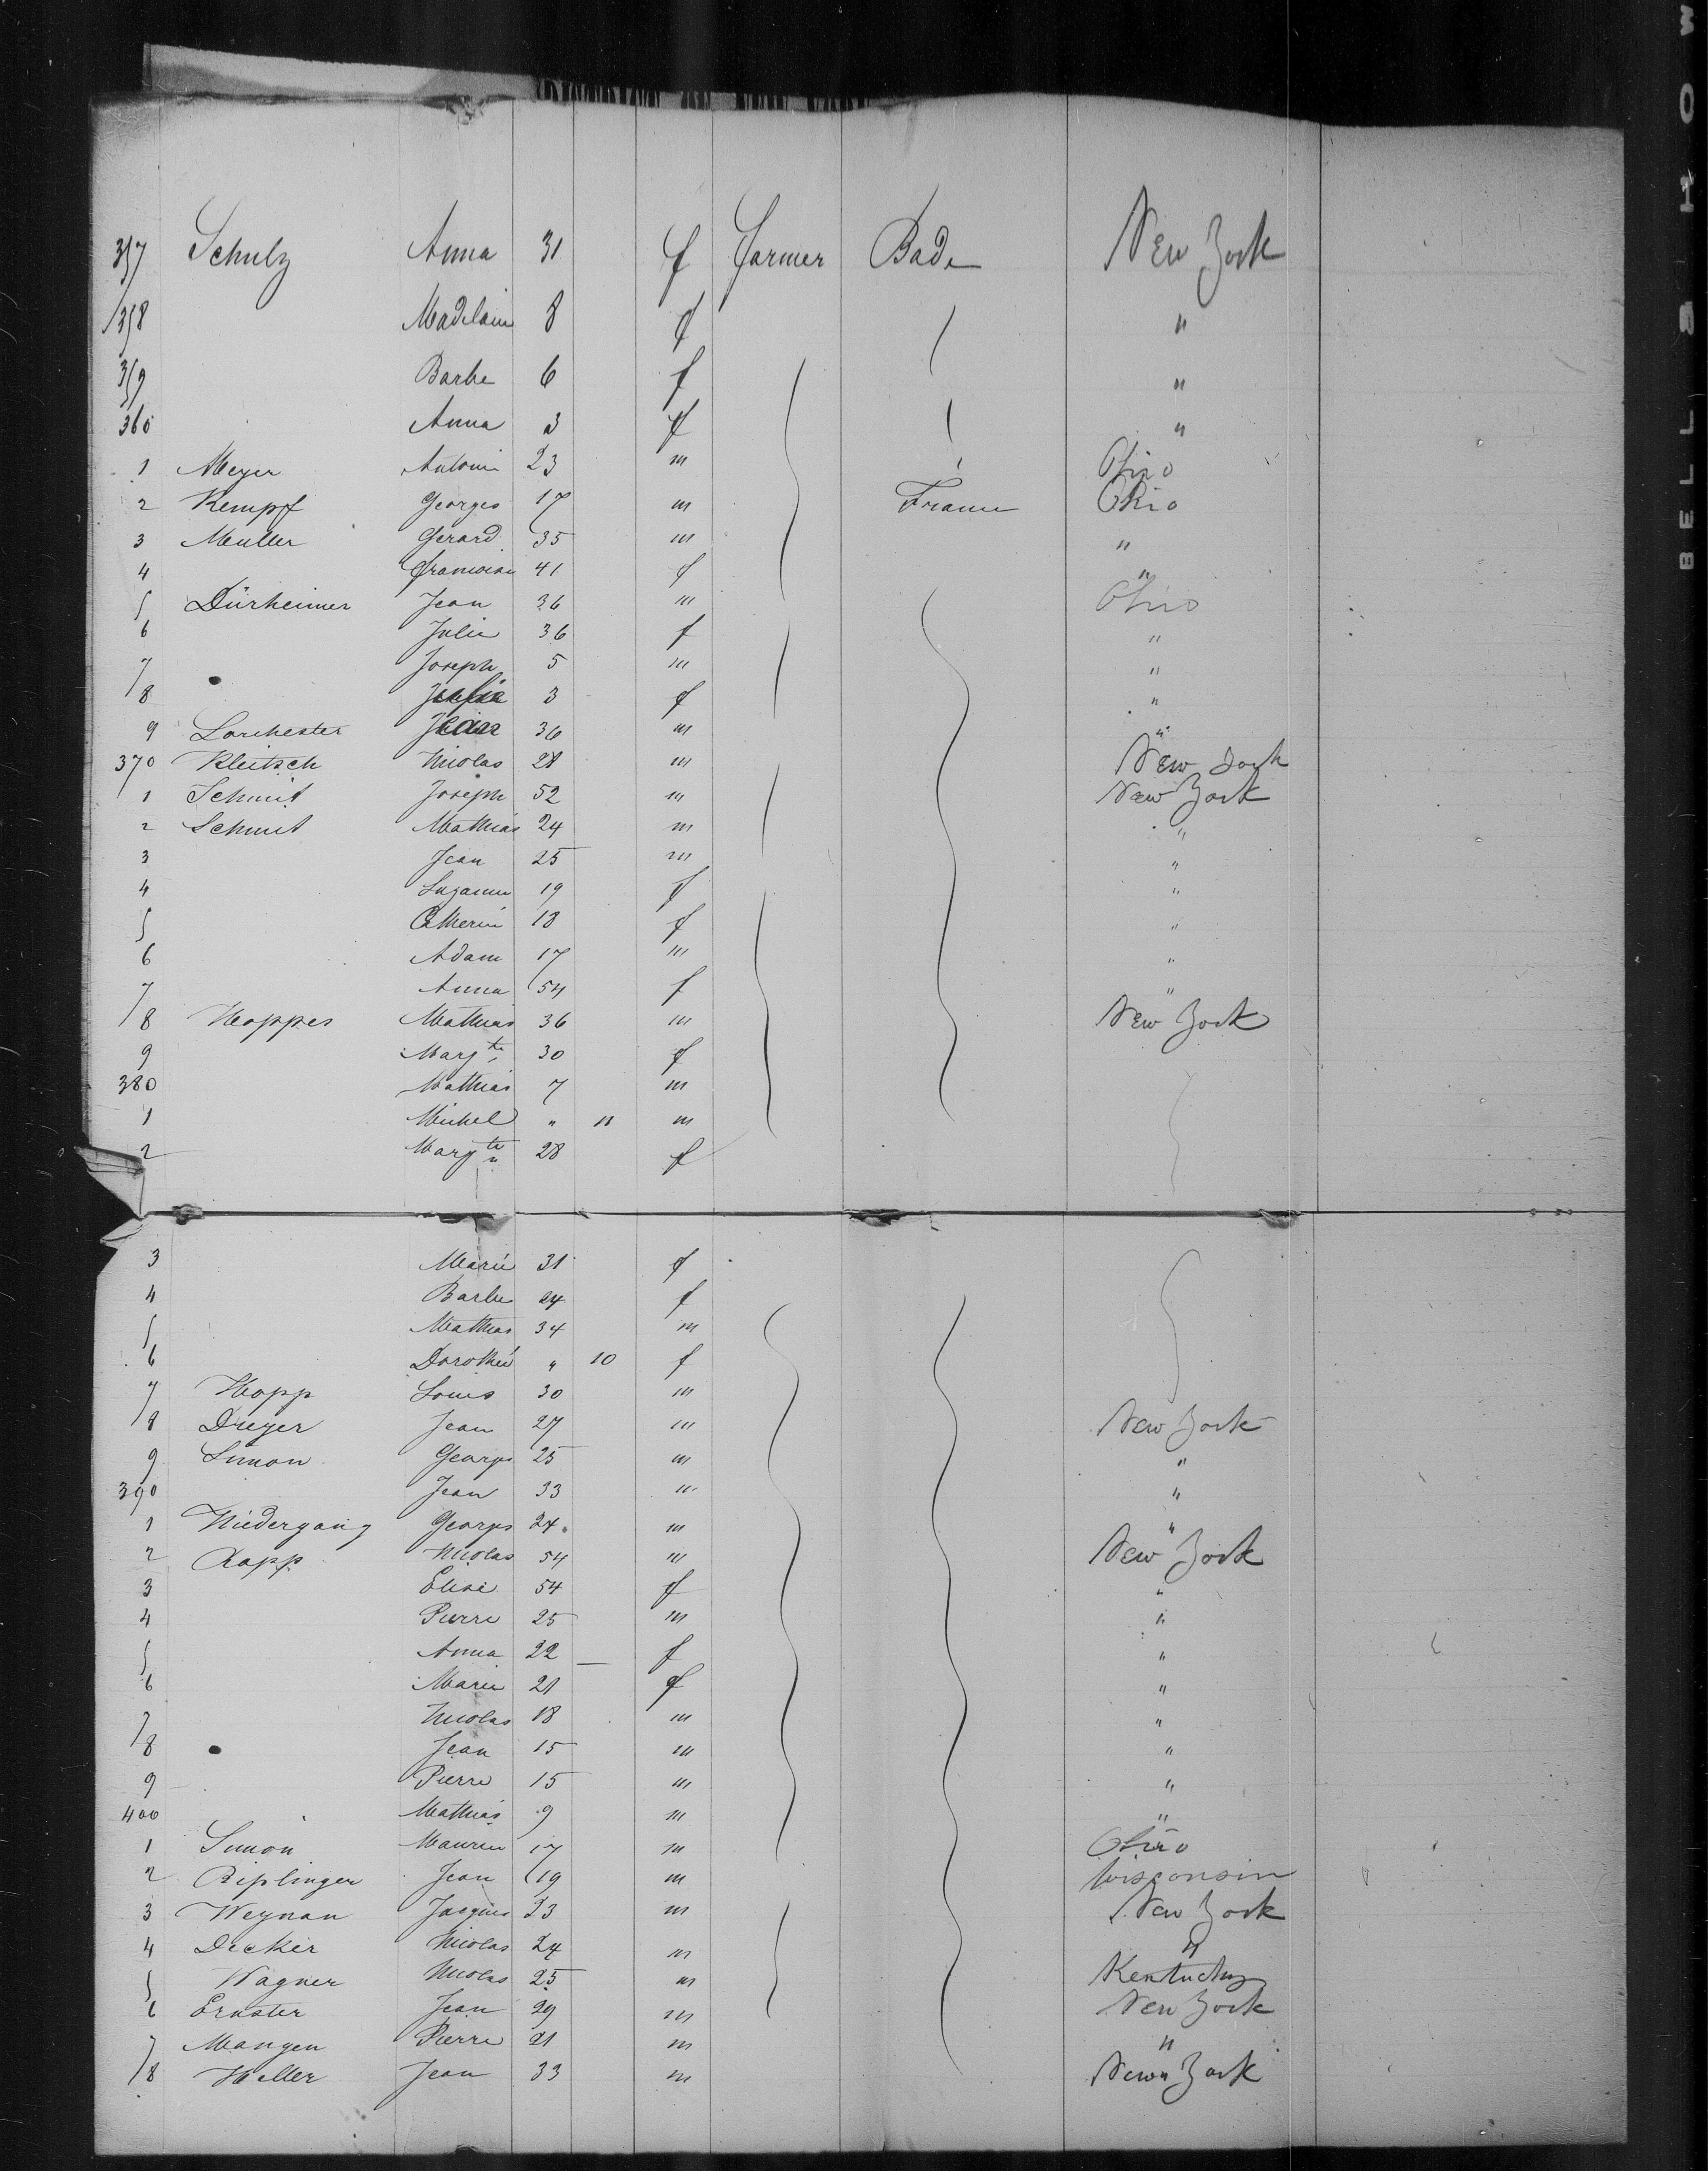 357 Schulz Anna 31 f farmer Bade New York
358 Madelain 8 f "
359 Barbe 6 f "
360 Anna 3 f "
1 Meyer Antoin 23 m Ohio
2 Kempf Georges 17 m France Ohio
3 Muller Gerard 35 m "
4 Francoise 41 f "
5 Dürheimer Jean 36 m Ohio
6 Julie 36 f "
7 Joseph 5 m "
8 3 f "
9 Lorchester Jean 36 m "
370 Kleitsch Nicolas 28 m New York
1 Schmit Joseph 52 m New York
2 Schmit Mathias 24 m "
3 Jean 25 m "
4 Suzanne 19 f "
5 Catherin 18 f "
6 Adam 17 m "
7 Anna 54 f "
8 Hoppes Mathias 36 m New York
9 Margte 30 f
380 Mathias 7 m
1 Michel " 11 m
2 Margte 28 f
3 Marie 31 f
4 Barbe 24 f
5 Mathias 34 m
6 Dorothée " 10 f
7 Hopp Louis 30 m
8 Dreyer Jean 27 m New York
9 Simon Georges 25 m "
390 Jean 33 m "
1 Niedergang Georges 24 m "
2 Rapp Nicolas 54 m New York
3 Elise 54 f "
4 Pierre 25 m "
5 Anna 22 f "
6 Marie 21 f "
7 Nicolas 18 m "
8 Jean 15 m "
9 Pierre 15 m "
400 Mathias 9 m "
1 Simon Maurice 17 m Ohio
2 Riplinger Jean 19 m Wisconsin
3 Weynan Jacques 23 m New York
4 Decker Nicolas 24 m "
5 Wagner Nicolas 25 m Kentucky
6 Ernster Jean 29 m New York
7 Mangen Pierre 21 m "
8 Heller Jean 33 m New York
BELL & HOW